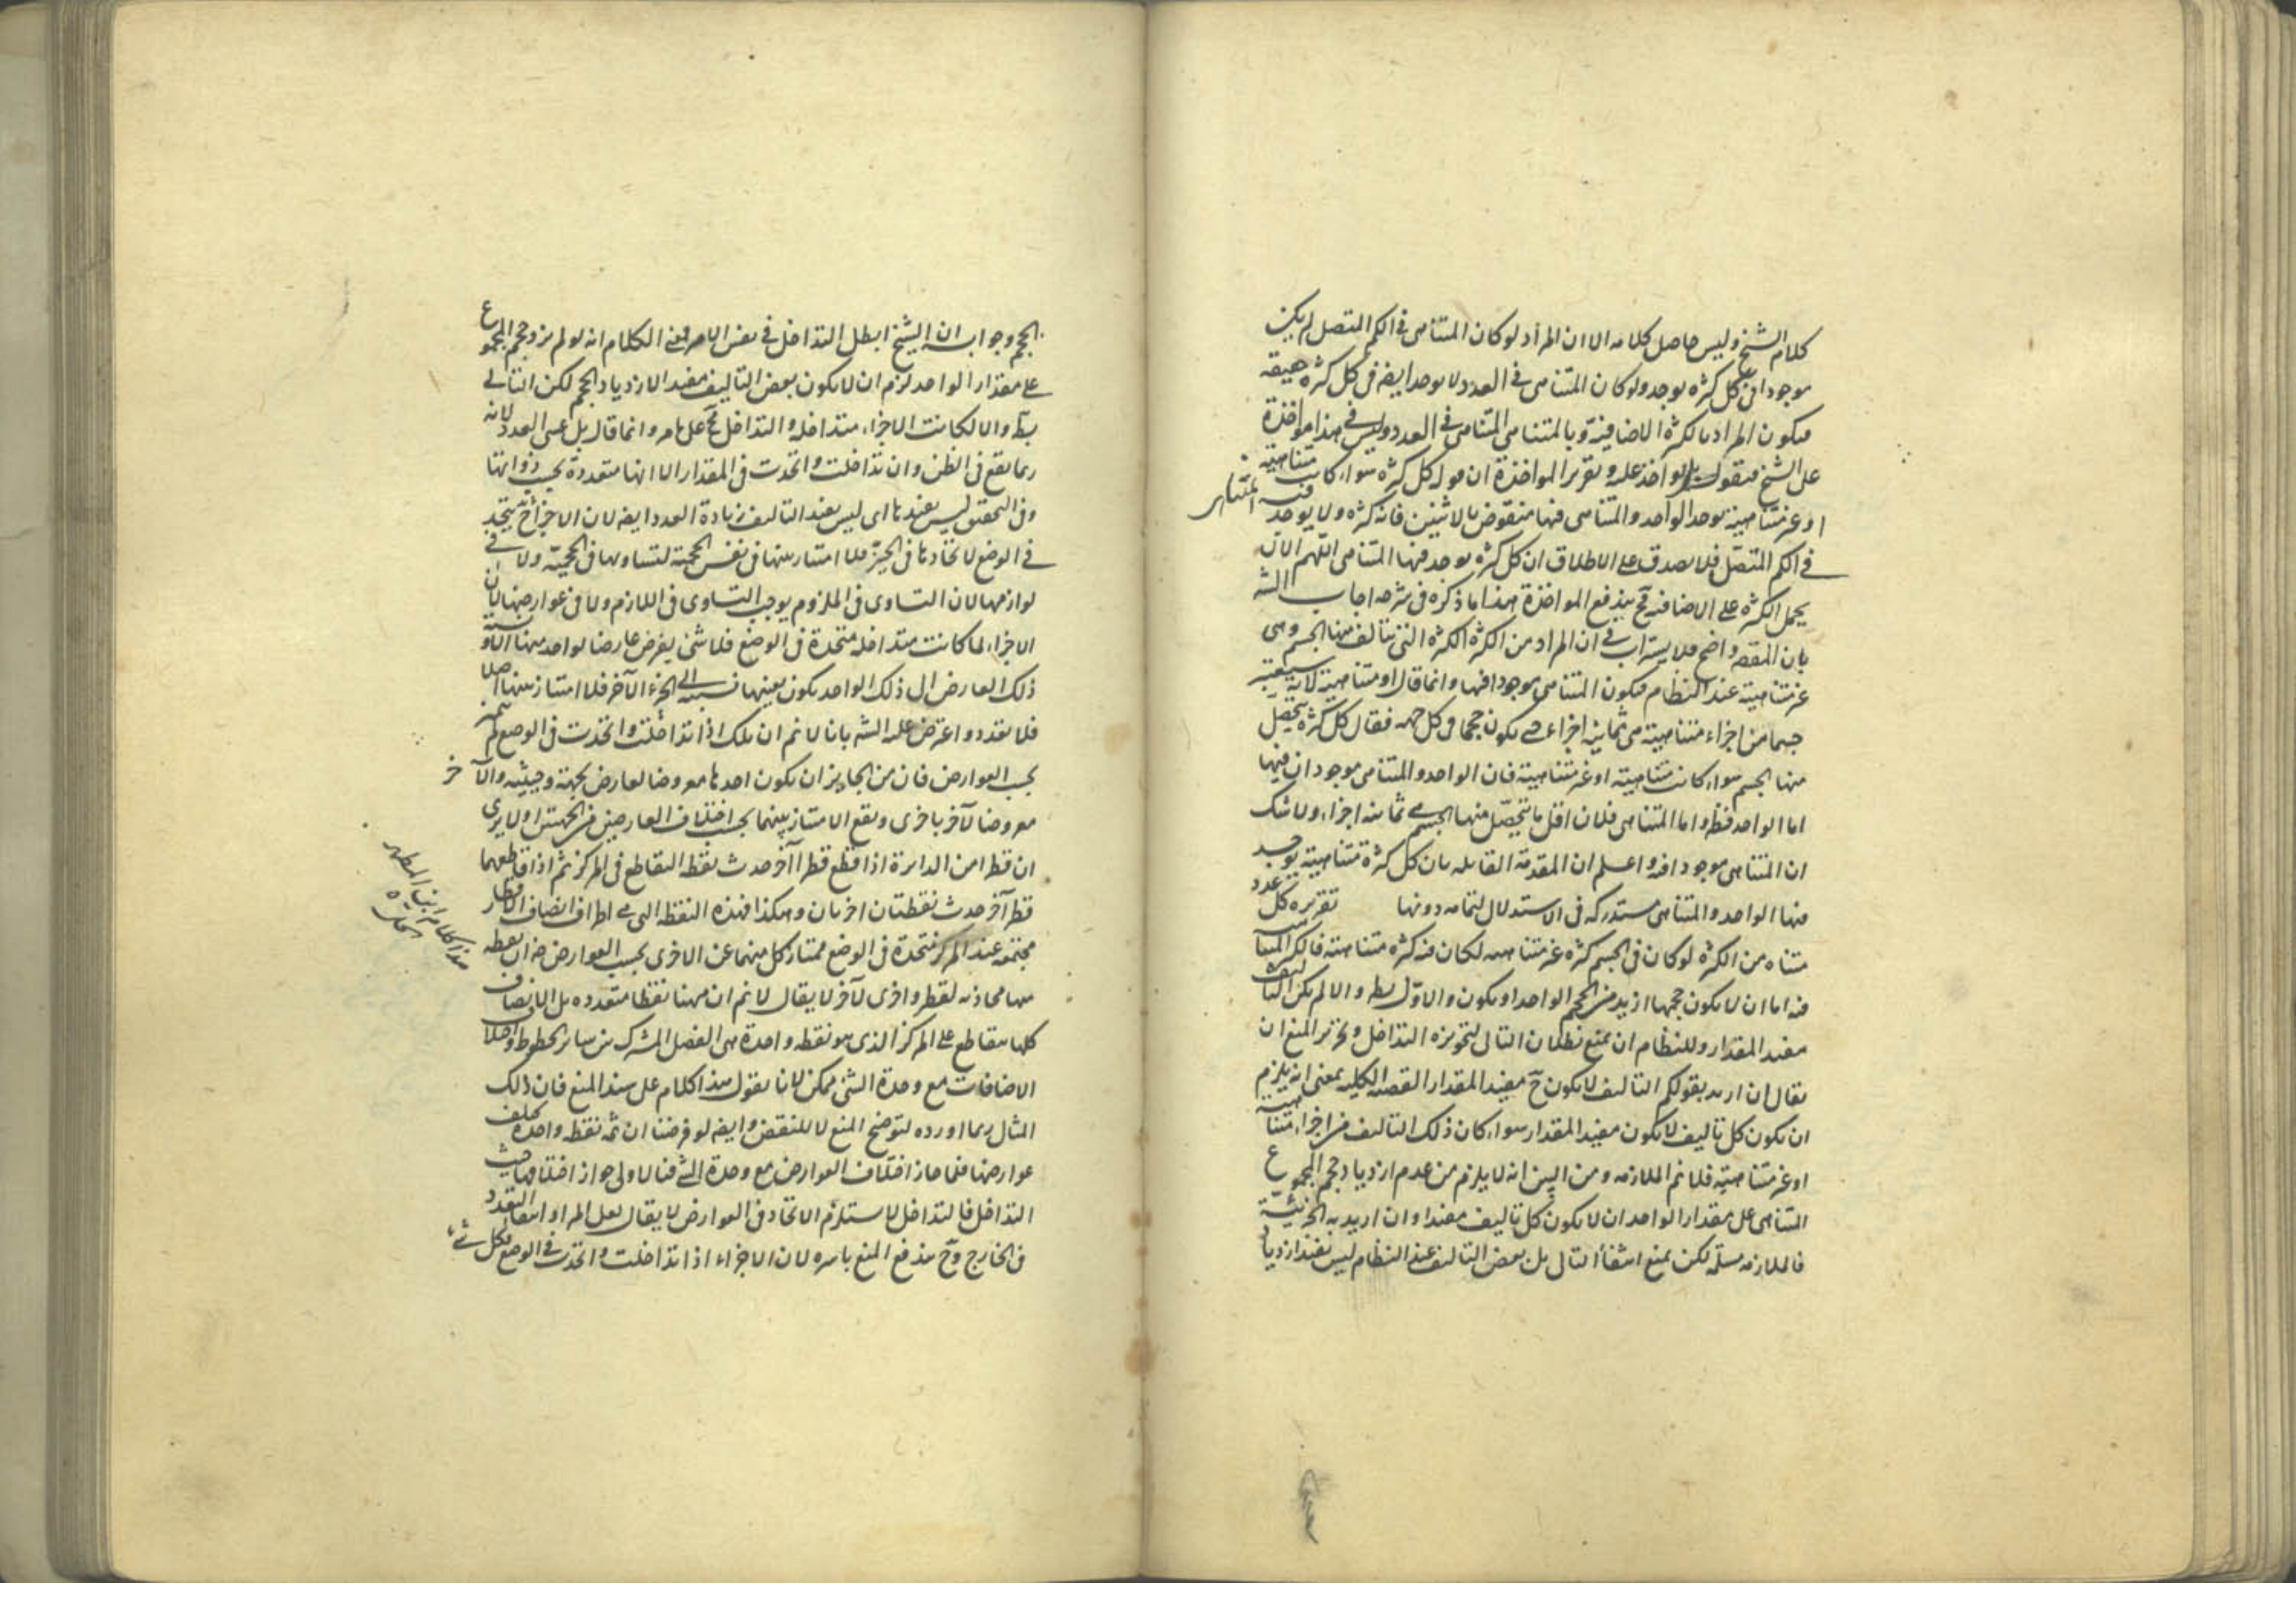 كلام الشيخ وليس حاصل كلامه الا ان المراد لو كان المتناهى فى الكم المتصل لم يكن
موجودا فى كل كثرة يوجد ولو كان المتناهى فى العدد لا يوجد ايضا فى كل كثرة حقيقة
فيكون المراد بالكثرة الاضافية وبالمتناهى المتناهى فى العدد وليس فى هذا مواخذة
على الشيخ فيقول بل يواخذ عليه وتقرير المواخذة ان قوله كل كثرة سواء كانت متناهية
او غير متناهية يوجد الواحد والمتناهى فيها منقوض بالاثنين فانه كثرة ولا يوجد فيه المتناهى
فى الكم المتصل فلا يصدق على الاطلاق ان كل كثرة يوجد فيها المتناهى اللهم الا ان
يحمل الكثرة على الاضافية فح يندفع المواخذة هذا ما ذكره فى شرحه اجاب الش
بان المقصود واضح فلا يستراب فى ان المراد من الكثرة الكثرة التى يتألف منها الجسم وهى
غير متناهية عند النظام فيكون المتناهى موجودا فيها وانما قال او متناهية لانه سيعتبر
جسما من اجزاء متناهية هى ثمانية اجزاء حتى يكون حجما فى كل جهة فقال كل كثرة يتحصل
منها الجسم سواء كانت متناهية او غير متناهية فان الواحد والمتناهى موجودان فيها
اما الواحد فظ واما المتناهى فلان اقل ما يتحصل منها الجسم هى ثمانية اجزاء ولا شك
ان المتناهى موجود فيه واعلم ان المقدمة القايلة بان كل كثرة متناهية يوجد
فيها الواحد والمتناهى مستدركة فى الاستدلال لتمامه دونها تقريره كل عدد
متناه من الكثرة لو كان فى الجسم كثرة غير متناهية لكان فيه كثرة متناهية فالكثرة المتناهية
فيه اما ان لا يكون حجمها ازيد من الحجم الواحد او يكون والاول بط والا لم يكن التأليف
مفيد المقدار وللنظام ان يمنع بطلان التالى لتجويزه التداخل وتحرير المنع ان
يقال ان اريد بقولكم التأليف لا يكون ح مفيد المقدار القضية الكلية بمعنى انه يلزم
ان يكون كل تأليف لا يكون مفيد المقدار سواء كان ذلك التأليف من اجزاء متناهية
او غير متناهية فلا نم الملازمة ومن البين انه لا يلزم من عدم ازدياد حجم المجموع
المتناهى على مقدار الواحد ان لا يكون كل تأليف مفيدا وان اريد به الجزئية
فالملازمة مسلمة لكن يمنع انتفاء التالى بل بعض التأليف عند النظام ليس يفيد ازدياد
الحجم وجوابه ان الشيخ ابطل التداخل فى نفس الامر فمعنى الكلام انه لو لم يزد حجم المجموع
على مقدار الواحد لزم ان لا يكون بعض التأليف مفيد الازدياد الحجم لكن التالى
بط والا لكانت الاجزاء متداخلة والتداخل مح على ما مر وانما قال بل عسى العدد لانه
ربما يقع فى الظن وان تداخلت واتحدت فى المقدار الا انها متعددة بحسب ذواتها
وفى التحقيق ليس يفيدها اى ليس يفيد التأليف زيادة العدد ايضا لان الاجزاء ح يتحد
فى الوضع لاتحادها فى الحيز فلا امتياز بينها فى نفس الحجمية لتساويها فى الحجمية ولا فى
لوازمها لان التساوى فى الملزوم يوجب التساوى فى اللازم ولا فى عوارضها لان
الاجزاء لما كانت متداخلة متحدة فى الوضع فلا شئ يفرض عارضا لواحد منها الا و
ذلك العارض الى ذلك الواحد يكون بعينها نسبته الى الجزء الآخر فلا امتياز بينها اصلا
فلا تعدد واعترض عليه الش بانا لا نم ان تلك اذا تداخلت واتحدت فى الوضع لم
بحسب العوارض فان من الجايز ان يكون احدها معروضا لعارض بجهة وحيثية والآخر
معروضا لآخر باخرى ويقع الامتياز بينهما بحسب اختلاف العارضين من الجهتين او لا يرى
ان قطرا من الدايرة اذا قطع قطرا آخر حدث نقطة التقاطع فى المركز ثم اذا قاطعهما
قطر آخر حدث نقطتان اخريان وهكذا فهذه النقطة التى هى اطراف انصاف الاقطار
مجتمعة عند المركز متحدة فى الوضع ممتاز كل منهما عن الاخرى بحسب العوارض ضرورة ان نقطة
منها محاذية لقطر واخرى لآخر لا يقال لا نم ان ههنا نقطا متعددة بل الانصاف
كلها يتقاطع على المركز الذى هو نقطة واحدة هى الفصل المشترك بين ساير الخطوط واختلاف
الاضافات مع وحدة الشئ ممكن لانا نقول هذا كلام على سند المنع فان ذلك
المثال ربما اورده لتوضيح المنع لا للنقض وايضا لو فرضنا ان ثمه نقطة واحدة يختلف
عوارضها فلما جاز اختلاف العوارض مع وحدة الشئ فبالاولى جواز اختلافها حيث
التداخل فالتداخل لا يستلزم الاتحاد فى العوارض لا يقال لعل المراد انتفاء التعدد
فى الخارج وح يندفع المنع باسره لان الاجزاء اذا تداخلت واتحدت فى الوضع فكل شئ